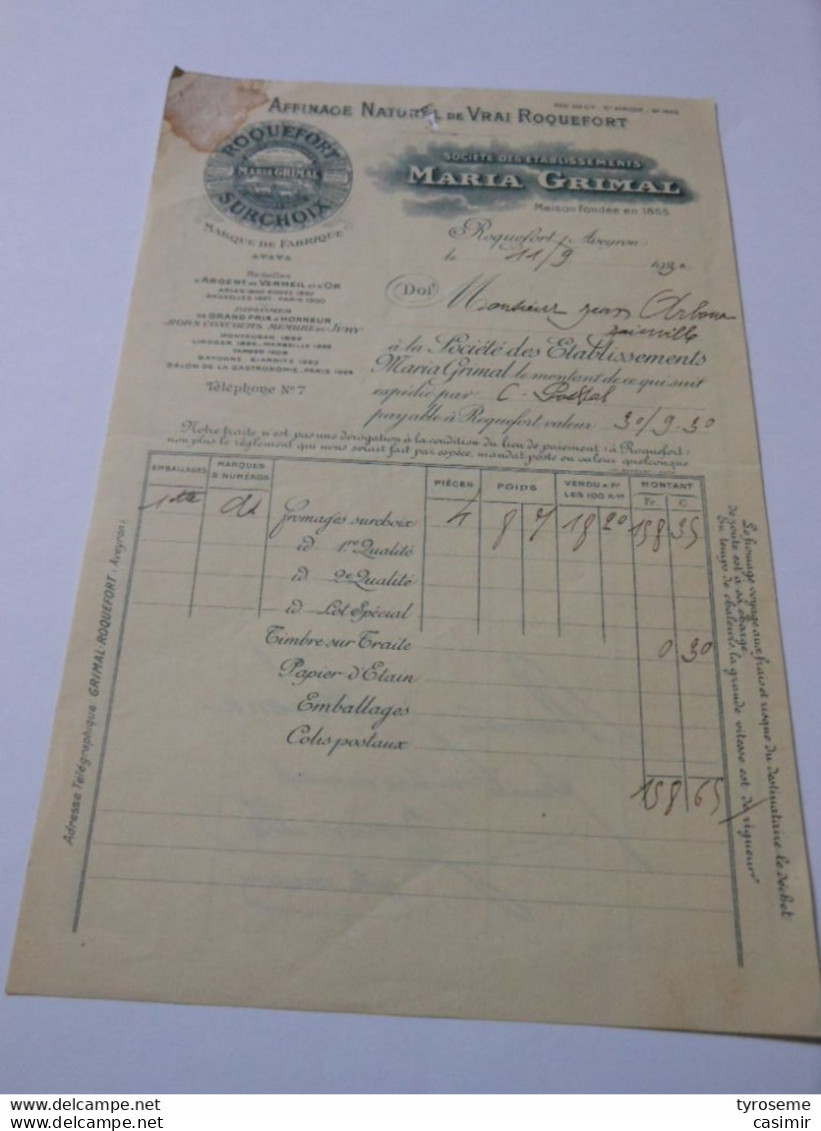 AFFINAGE NATUREL DE VRAI ROQUEFORT
ROQUEFORT
MARIA GRIMAL
SURCHOIX
MARQUE DE FABRIQUE
SOCIÉTÉ DES ETABLISSEMENTS
MARIA GRIMAL
Maison Fondée en 1855
Roquefort (Aveyron)
le 11/9 1930
Médailles
D'ARGENT DE VERMEIL ET D'OR
BRUXELLES 1897 - PARIS 1900
DIPLOMES
DE GRAND PRIX & HONNEUR
HORS CONCOURS, MEMBRE DU JURY
SALON DE LA GASTRONOMIE, PARIS
Téléphone No 7
Doit Monsieur Jean
à la Société des Etablissements
Maria Grimal le montant de ce qui suit
expédié par C. Postal
payable à Roquefort valeur 30/9-30
Notre traite n'est pas une dérogation à la condition du lieu de paiement (à Roquefort)
non plus le règlement qui nous serait fait par espèce, mandat poste ou valeur quelconque
EMBALLAGES MARQUES & NUMÉROS PIÈCES POIDS VENDU A Fr LES 100 K os MONTANT
Fr C
Fromages surchoix 4 8 7 18 20 158 35
id 1re Qualité
id 2e Qualité
id Lot Spécial
Timbre sur Traite 0 30
Papier d'Etain
Emballages
Colis postaux
158 65
Adresse Télégraphique GRIMAL-ROQUEFORT (Aveyron)
Le fromage voyage aux frais et risque du destinataire le déchet
de route est à sa charge.
En temps de chaleurs la grande vitesse est de rigueur
tyroseme
casimir